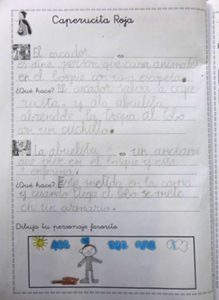 Caperucita Roja
El cazador es
una persona que caza animales
en el bosque con una escopeta.
¿Qué hace? El cazador salva la cape
rucita y ala abuelita
abriendole la tripa al lobo
con un cuchillo
La abuelita es un anciana
que vive en el bosque y esta
enferma.
¿Qué hace? Esta metida en la cama
y cuando llega el lobo se mete
en un armario.
Dibuja tu personaje favorito